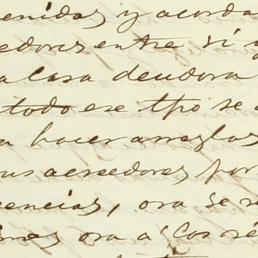 enidas y acorda
edores entre si y
a casa deudora
todo ese tpo se
a hacer arreglos
us acreedores por
encias, ora se
ora a los